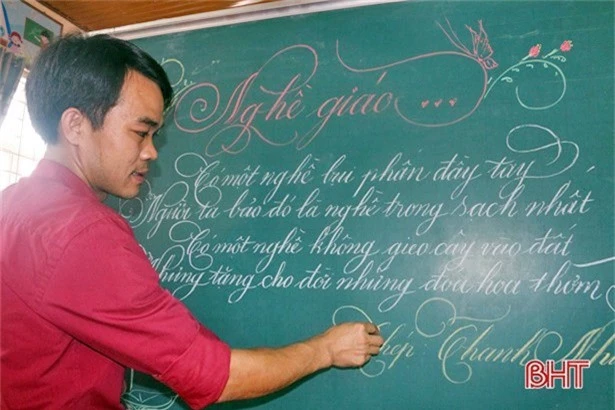 Nghề giáo ...
Có một nghề bụi phấn đầy tay
Người ta bảo đó là nghề trong sạch nhất
Có một nghề không gieo cây vào đất
Nhưng tặng cho đời những đóa hoa thơm
Thanh
BHT